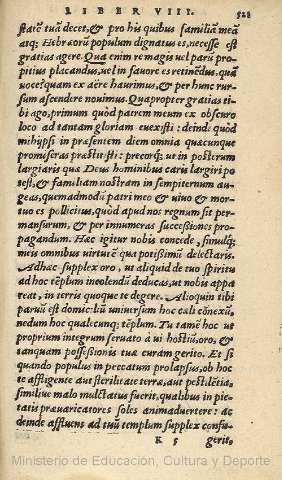 LIBER VIII.
521
statẽ tuã decet, & pro his quibus familiã meã
atq; Hebræorũ populum dignatus es, necesse est
gratias agere. Qua enim re magis uel paru pro-
pitius placandus, uel in fauore es retinẽdus, quã
uoce? quam ex aëre haurimus, & per hunc rur-
sum ascendere nouimus. Quapropter gratias ti-
bi ago, primum quòd patrem meum ex obscuro
loco ad tantam gloriam euexisti: deindè quòd
mihipsi in præsentem diem omnia quæcunque
promiseras præstitisti: precorq; ut in posterum
largiaris quæ Deus hominibus caris largiri po
test, & familiam nostram in sempiternum au-
geas, quemadmodũ patri meo & uiuo & mor-
tuo es pollicitus, quòd apud nos regnum sit per-
mansurum, & per innumeras successiones pro-
pagandum. Hæc igitur nobis concede, simulq;
meis omnibus uirtutẽ qua potissimũ delectaris.
Adhæc supplex oro, ut aliquid de tuo spiritu
ad hoc tẽplum incolendũ deducas, ut nobis appa
reat, in terris quoque te degere. Alioquin tibi
paruũ est domiciliũ uniuersum hoc cæli conuexũ,
nedum hoc qualecunq; tẽplum. Tu tamẽ hoc ut
proprium integrum seruato à ui hostiũ, oro, &
tanquam possessionis tuæ curam gerito. Et si
quando populus in peccatum prolapsus, ob hoc
te affligente aut sterilitate terræ, aut pestilẽtia,
similiue malo mulctatus fuerit, qualibus in pie-
tatis præuaricatores soles animaduertere: ac
deinde affluens ad tuũ templum supplex confu-
K 5
gerit,
Ministerio de Educación, Cultura y Deporte